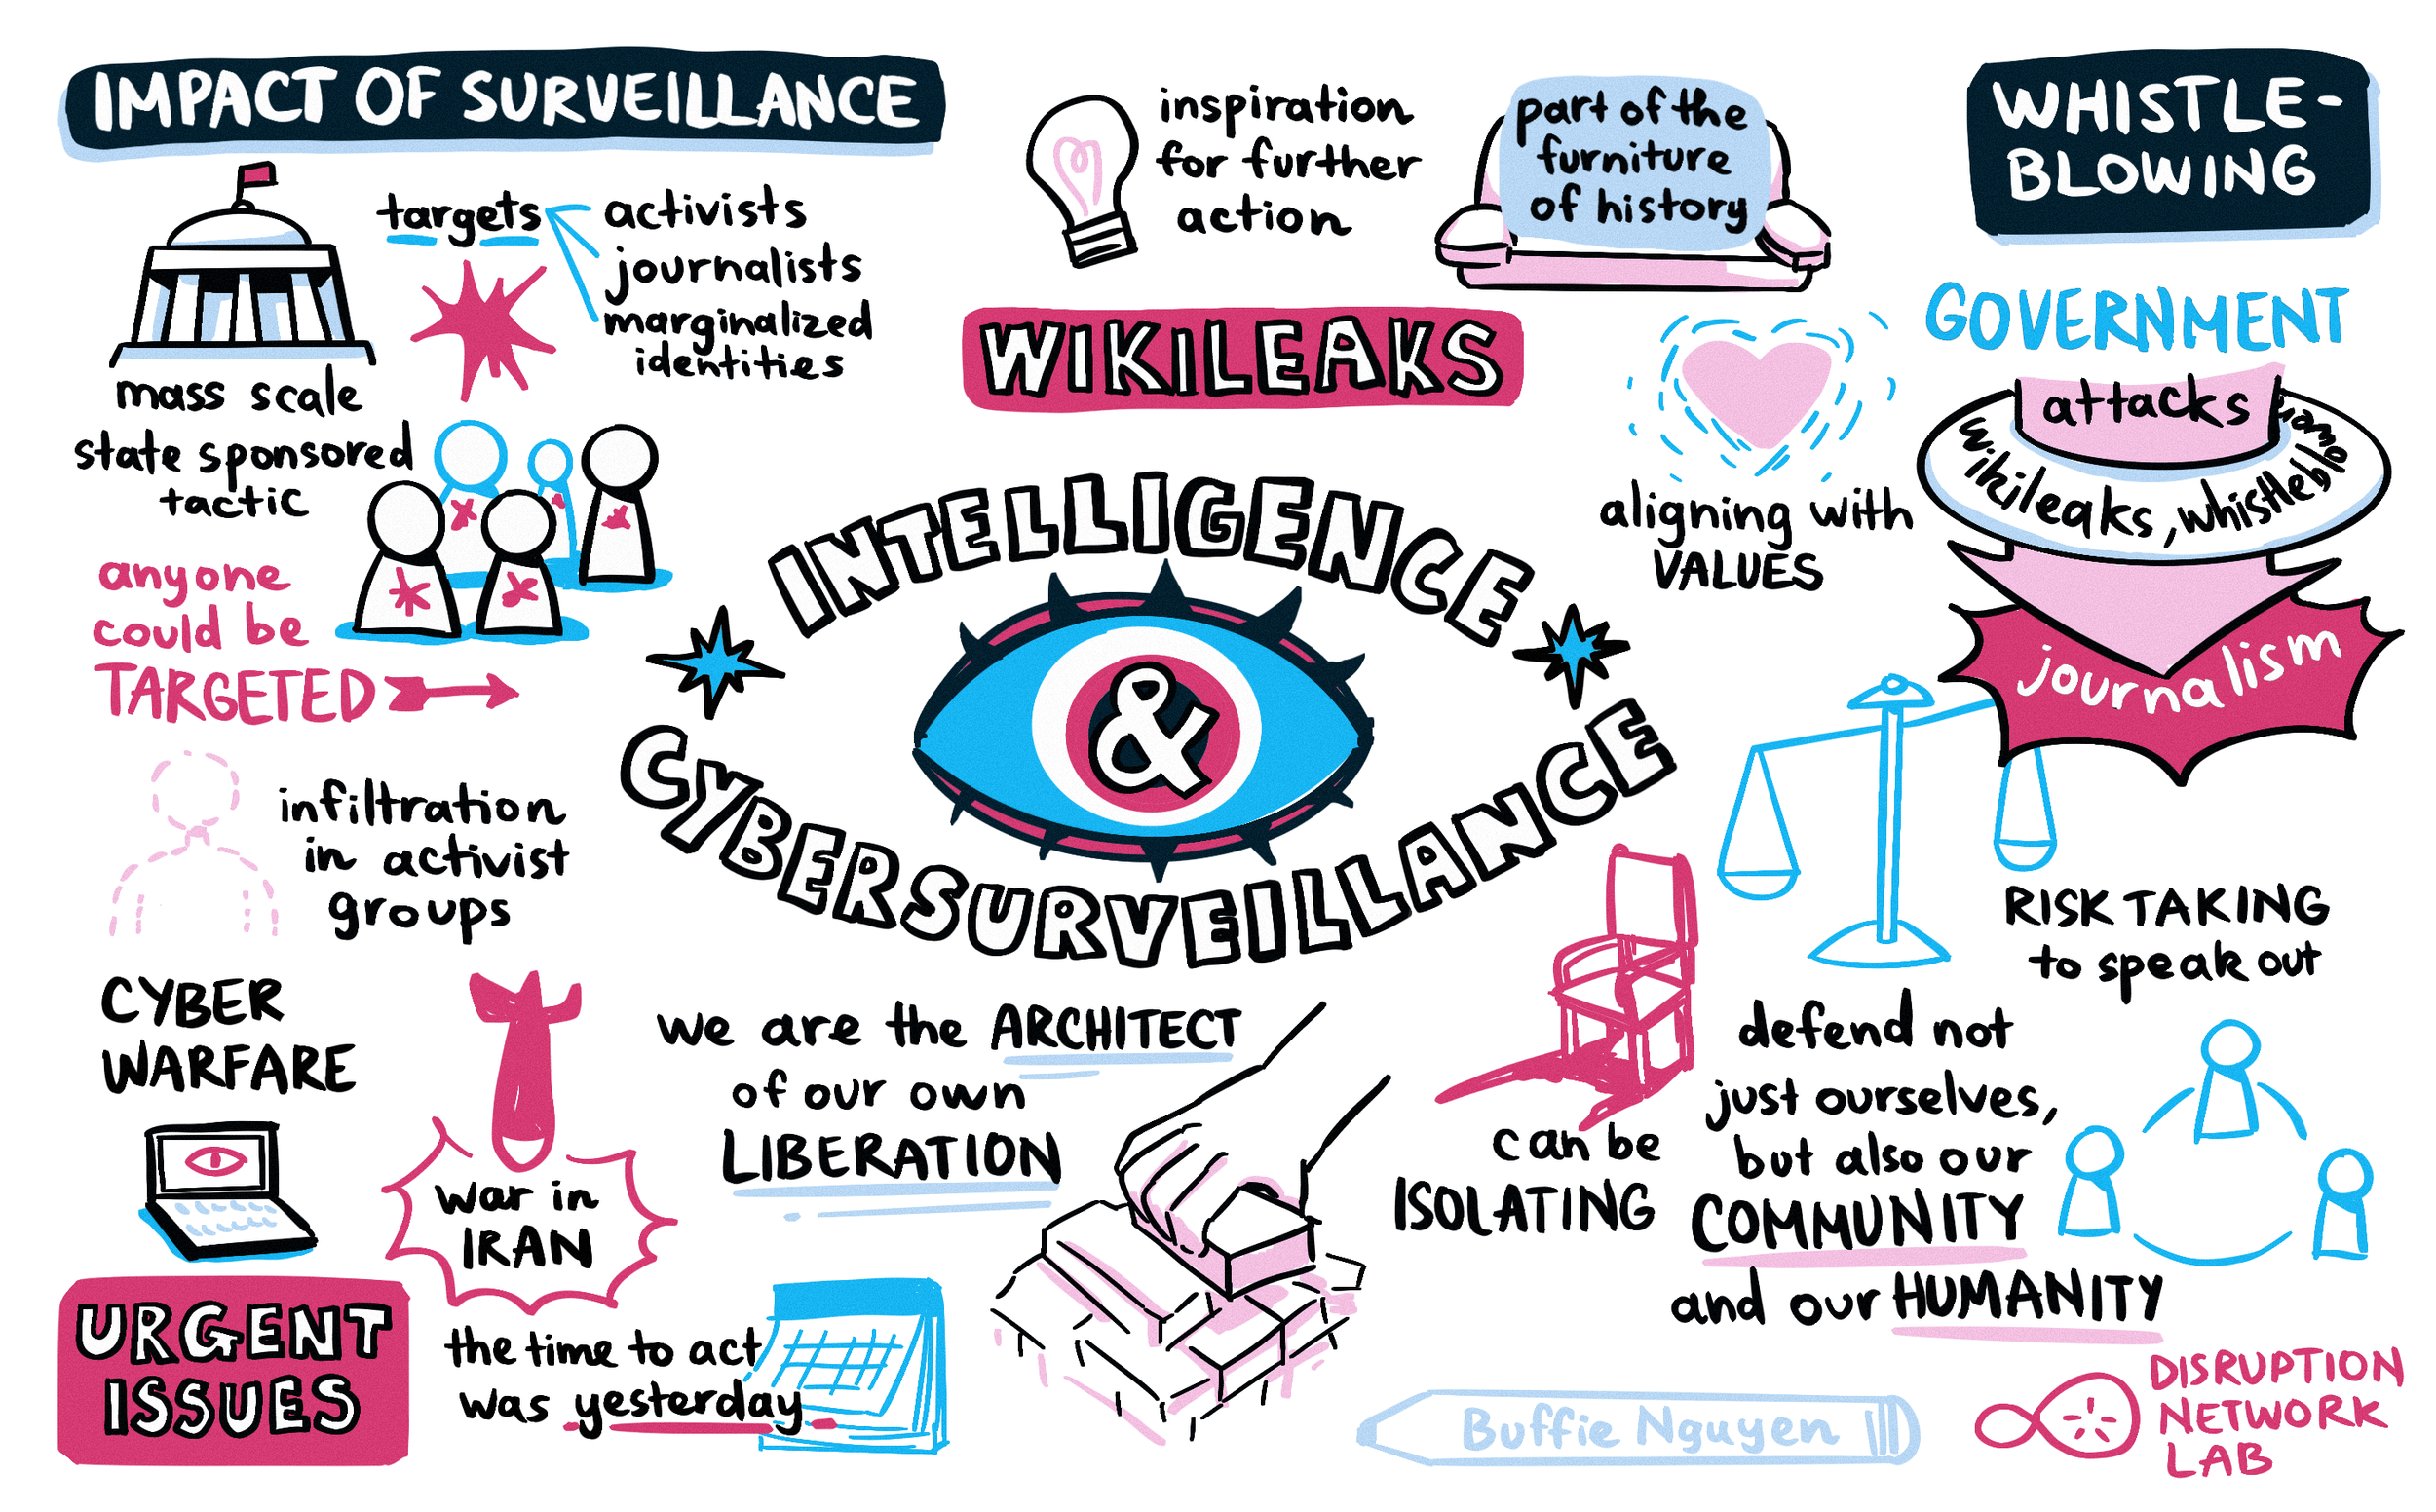 IMPACT OF SURVEILLANCE
targets
activists
journalists
marginalized
identities
mass scale
state sponsored
tactic
anyone
could be
TARGETED
infiltration
in activist
groups
CYBER
WARFARE
war in
IRAN
URGENT
ISSUES
the time to act
was yesterday
inspiration
for further
action
part of the
furniture
of history
WIKILEAKS
INTELLIGENCE
&
CYBERSURVEILLANCE
we are the ARCHITECT
of our own
LIBERATION
WHISTLE-
BLOWING
GOVERNMENT
attacks
wikileaks, whistleblo
journalism
aligning with
VALUES
RISK TAKING
to speak out
can be
ISOLATING
defend not
just ourselves,
but also our
COMMUNITY
and our HUMANITY
Buffie Nguyen
DISRUPTION
NETWORK
LAB